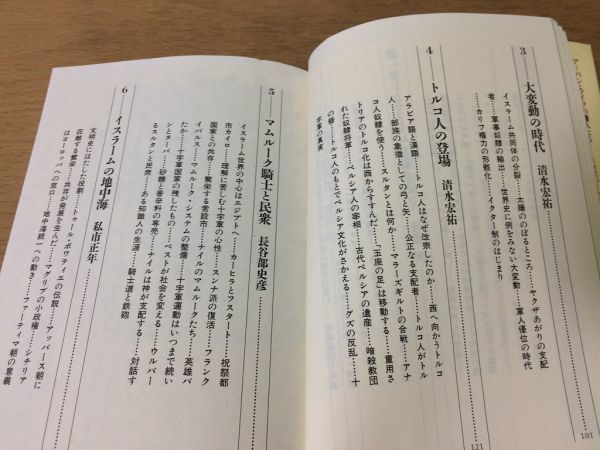 3 大変動の時代 清水宏祐
イスラーム共同体の分裂……太陽ののぼるところ……ヤクザあがりの支配
者……軍事奴隷の輸出……世界史に例をみない大変動……軍人優位の時代
……カリフ権力の形骸化……イクター制のはじまり
101
4 トルコ人の登場 清水宏祐
アラビア語と漢語……トルコ人はなぜ改宗したのか……西へ向かうトルコ
人……部族の象徴としての弓と矢……公正なる支配者……トルコ人がトル
コ人奴隷を使う……スルタンとは何か……マラーズギルトの合戦……アナ
トリアのトルコ化は西からすすんだ……「玉座の足」は移動する……重用さ
れた奴隷将軍……ペルシア人の宰相……古代ペルシアの遺産……暗殺教団
の砦……トルコ人のもとでペルシア文化がさかえる……グズの反乱……十
字軍の真実
121
5 マムルーク騎士と民衆 長谷部史彦
イスラーム世界の中心はエジプトへ……カーヒラとフスタート……祝祭都
市カイロ……理解に苦しむ十字軍の心性……スンナ派の復活……フランク
国家との共存……繁栄する常設市……ナイルのマムルークたち……英雄バ
イバルス……マムルーク・システムの整備……十字軍運動はいつまで続い
たか……十字軍国家の残したもの……ペストが社会を変える……ウルバー
ンとヌーバ……砂糖と香辛料の専売……ナイルは神が支配する……対話す
るスルタンと民衆……ある知識人の生涯……騎士道と鉄砲
6 イスラームの地中海 私市正年
文明史にはたした役割……トゥール・ポワティエの伝説……アッバース朝に
匹敵する繁栄……共存が発展を生んだ……マグリブの小政権……シチリア
はヨーロッパへの窓口……地中海統一への動き……ファーティマ朝の意義